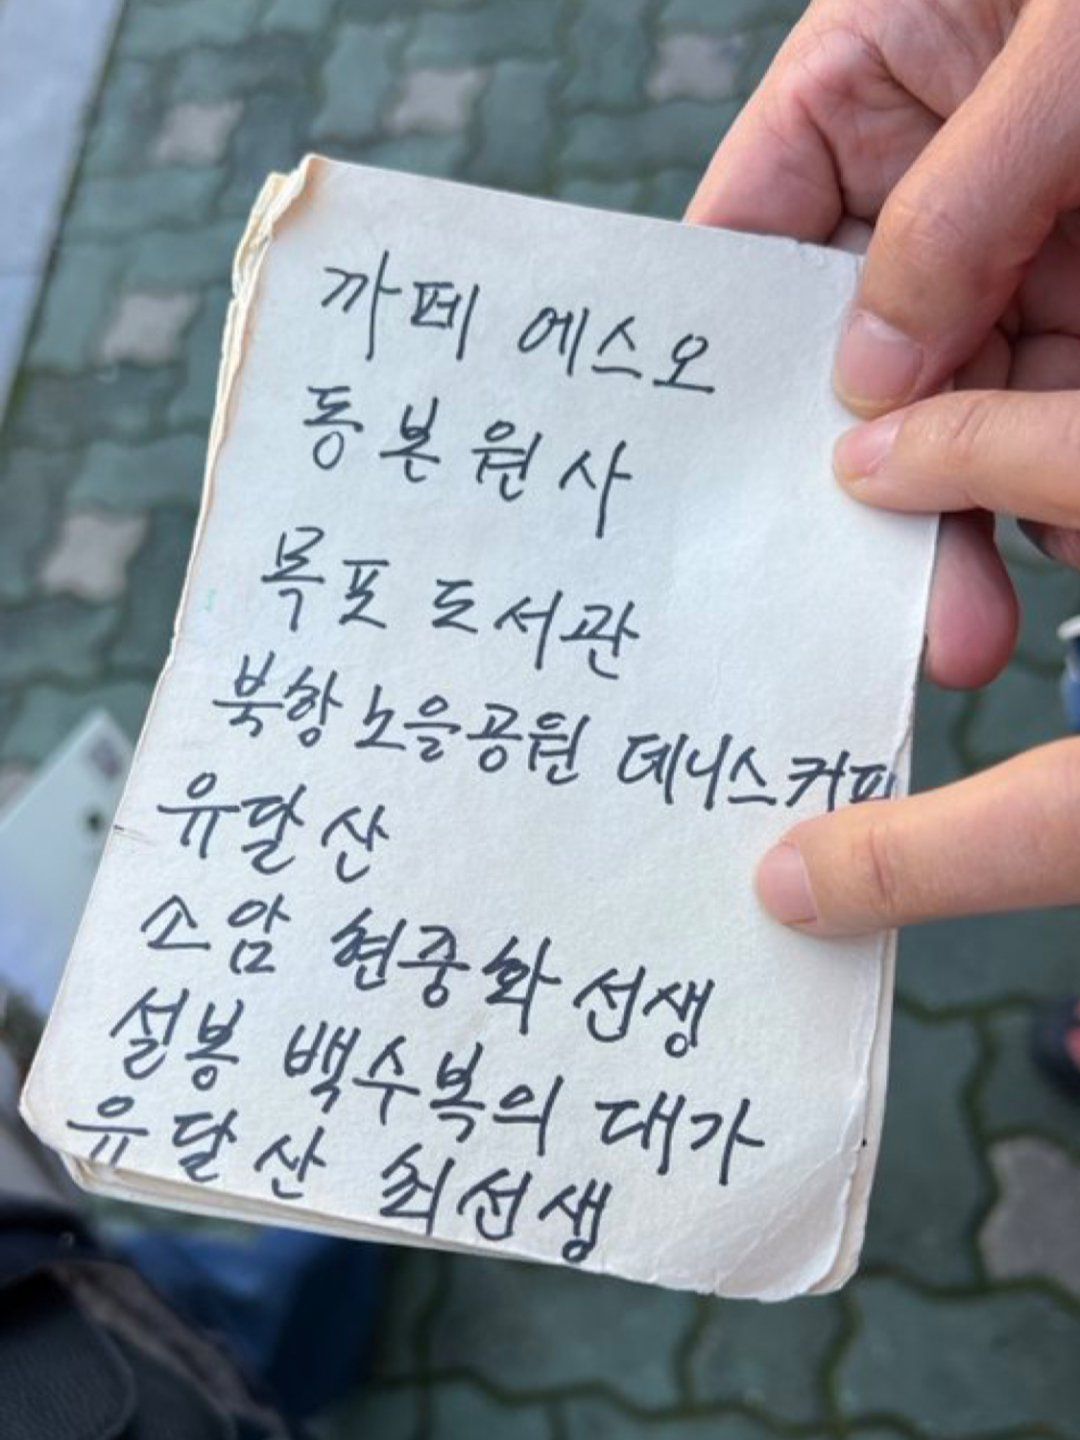 까페 에스오
동본원사
목폿 도서관
북항노을공원 데니스커피
유달산
소암 현중화선생
설봉 백수복의 대가
유달산 최선생